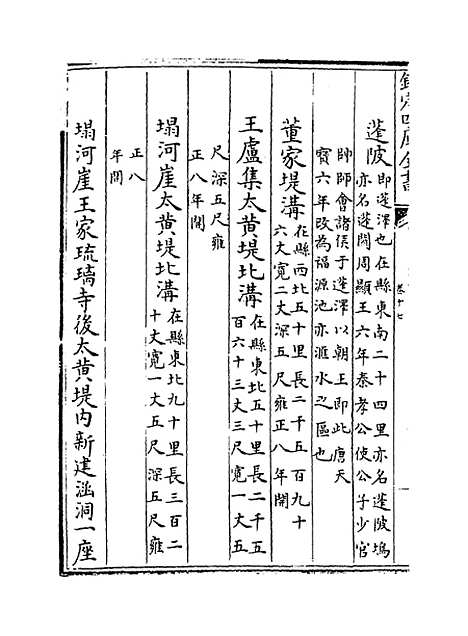 欽定四庫全書
卷十七
蓬陂即蓬澤也在縣東南二十四里亦名蓬陂塢
亦名蓬闗周顯王六年秦孝公使公子少官
帥師會諸侯于蓬澤以朝王即此唐天
寳六年改為福源池亦滙水之區也
董家堤溝在縣西北五十里長二千五百九十
六丈寛二丈深五尺雍正八年開
王盧集太黄堤北溝在縣東北五十里長二千五
百六十三丈三尺寛一丈五
尺深五尺雍
正八年開
塌河崖太黄堤北溝在縣東北九十里長三百二
十丈寛一丈五尺深五尺雍
正八
年開
塌河崖王家琉璃寺後太黄堤内新建涵洞一座